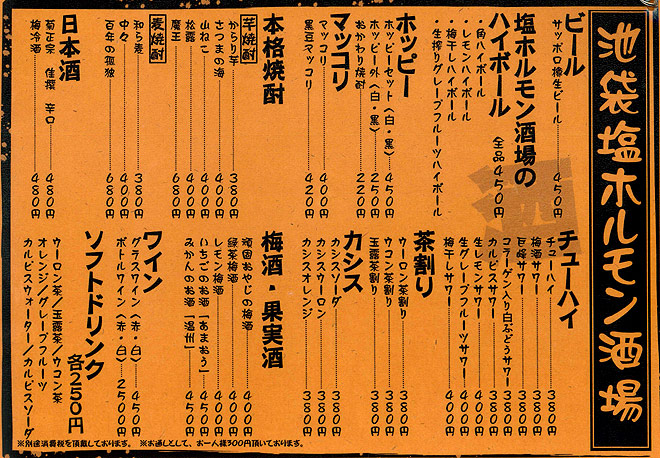 池袋塩ホルモン酒場
ビール
サッポロ樽生ビール 450円
塩ホルモン酒場の
ハイボール 全品450円
・角ハイボール
・レモンハイボール
・梅干しハイボール
・生搾りグレープフルーツハイボール
ホッピー
ホッピーセット(白・黒) 450円
ホッピー外(白・黒) 250円
おかわり焼酎 220円
マッコリ
マッコリ 400円
黒豆マッコリ 420円
本格焼酎
芋焼酎
からり芋 380円
さつまの海 400円
山ねこ 400円
松露 400円
魔王 680円
麦焼酎
和ら麦 380円
中々 400円
百年の孤独 680円
日本酒
菊正宗 佳撰 辛口 480円
梅冷酒 480円
チューハイ
チューハイ 380円
梅酒サワー 380円
巨峰サワー 380円
コラーゲン入り白ぶどうサワー 380円
カルピスサワー 380円
生レモンサワー 400円
生グレープフルーツサワー 400円
梅干しサワー 400円
茶割り
ウーロン茶割り 380円
ウコン茶割り 380円
玉露茶割り 380円
カシス
カシスソーダ 380円
カシスウーロン 380円
カシスオレンジ 380円
梅酒・果実酒
頑固おやじの梅酒 400円
緑茶梅酒 400円
レモン梅酒 400円
いちごのお酒「あまおう」 450円
みかんのお酒「温州」 450円
ワイン
グラスワイン(赤・白) 450円
ボトルワイン(赤・白) 2500円
ソフトドリンク 各250円
ウーロン茶/玉露茶/ウコン茶
オレンジ/グレープフルーツ
カルピスウォーター/カルピスソーダ
※別途消費税を頂戴しております。 ※お通しとして、お一人様300円頂いております。
酒